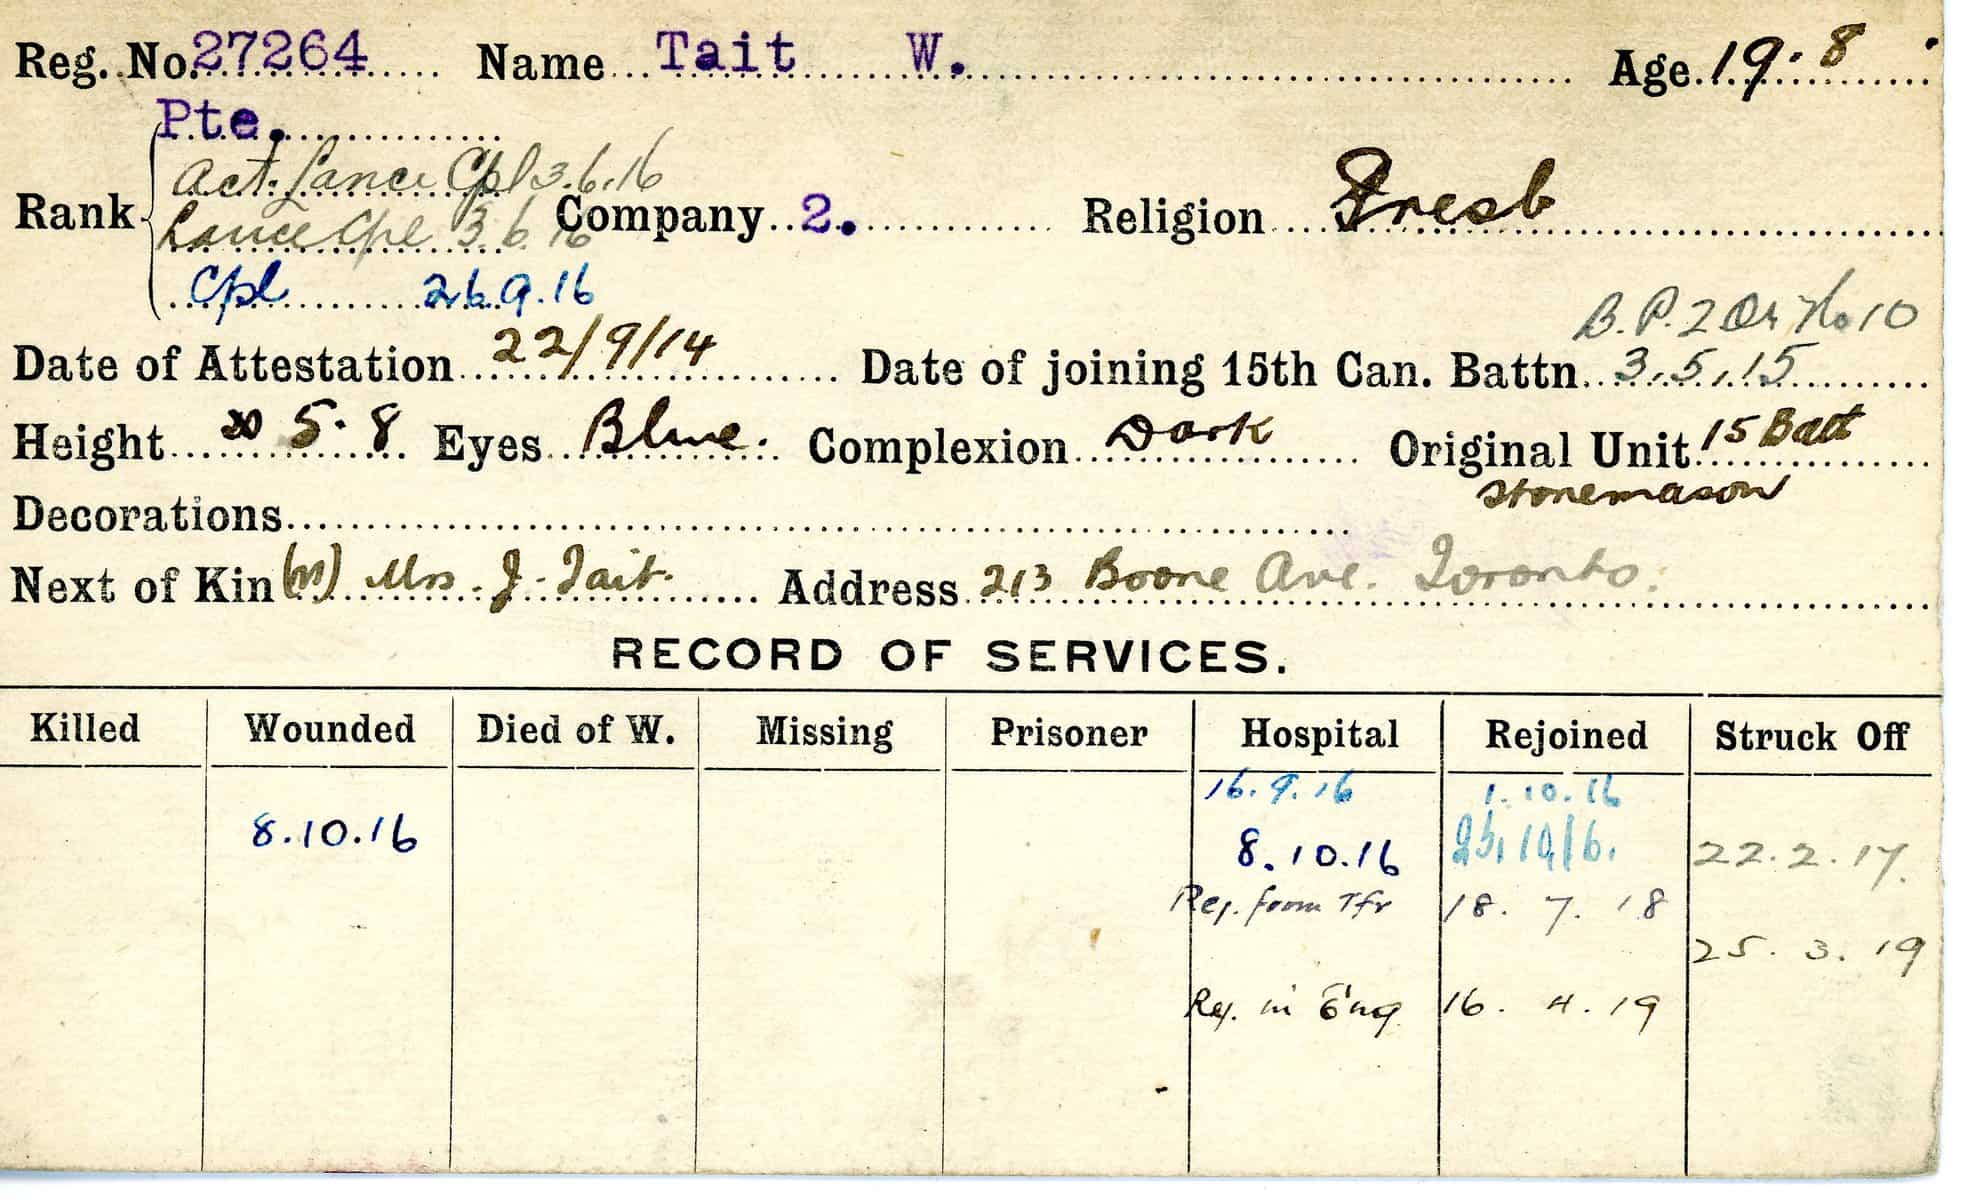 Reg. No. 27264 Name Tait W. Age 19.8
Pte.
Act. Lance Cpl 3.6.16
Rank Lance Cpl 3.6.16 Company 2. Religion Presb
Cpl 26.9.16
B.P. 2 Or No 10
Date of Attestation 22/9/14 Date of joining 15th Can. Battn. 3.5.15
Height 5.8 Eyes Blue. Complexion Dark Original Unit 15 Batt
Stonemason
Decorations
Next of Kin (m) Mrs. J. Tait. Address 213 Boone Ave. Toronto.
RECORD OF SERVICES.
Killed Wounded Died of W. Missing Prisoner Hospital Rejoined Struck Off
16.9.16 1.10.16
8.10.16 8.10.16 22.2.17.
Rej. from Tfr 18. 7. 18
25. 3. 19
Rej. in Eng 16. 4. 19